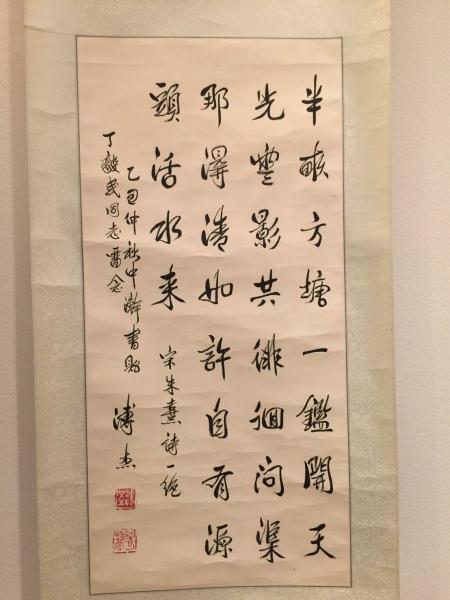 半畝方塘一鑑開天
光雲影共徘徊问渠
那得清如許自有源
頭活水来
宋朱熹詩一絶
乙丑仲秋中澣書贻
丁毅民同志畱念
溥杰